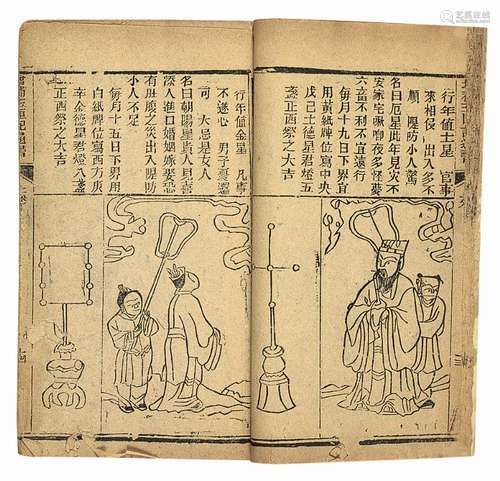 行年值土星 官事
來相侵 出入多不
順 隄防小人驚
名曰厄星此年見灾不
安家宅啾唧夜多怪夢
六畜不利不宜遠行
每月十九日下界宜
用黃紙牌位寫中央
戊己土德星君燈五
盞正西祭之大吉
行年值金星 凡事
不遂心 男子還
可 大忌是女人
名曰朝陽星貴人見喜
添人進口婚姻嫁娶恐
有腹之灾出入隄防
小人不足
每月十五日下界用
白紙牌位寫西方庚
辛金德星君燈八盞
正西祭之大吉